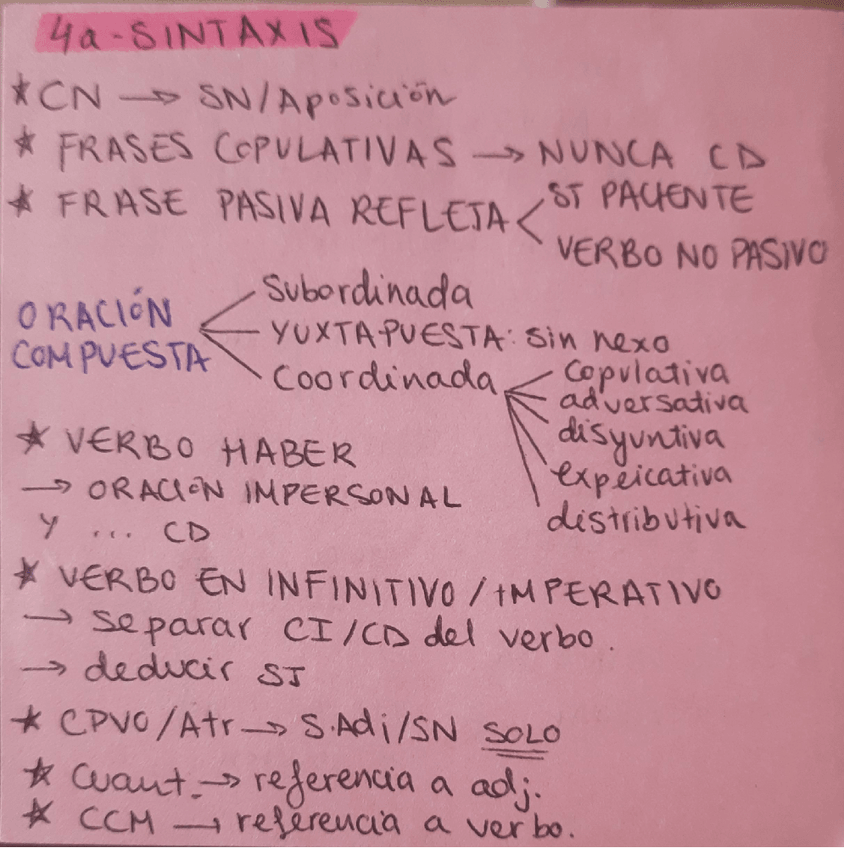 4a-SINTAXIS
* CN → SN/Aposición
* FRASES COPULATIVAS → NUNCA CD
* FRASE PASIVA REFLEJA < SJ PACIENTE
VERBO NO PASIVO
ORACIÓN COMPUESTA
Subordinada
YUXTAPUESTA: sin nexo
Coordinada
copulativa
adversativa
disyuntiva
expeicativa
distributiva
* VERBO HABER
→ ORACIÓN IMPERSONAL
Y ... CD
* VERBO EN INFINITIVO/IMPERATIVO
→ separar CI/CD del verbo.
→ deducir SJ
* CPVO/Atr → S.Adj/SN SOLO
* Cuant. → referencia a adj.
* CCM → referencia a verbo.